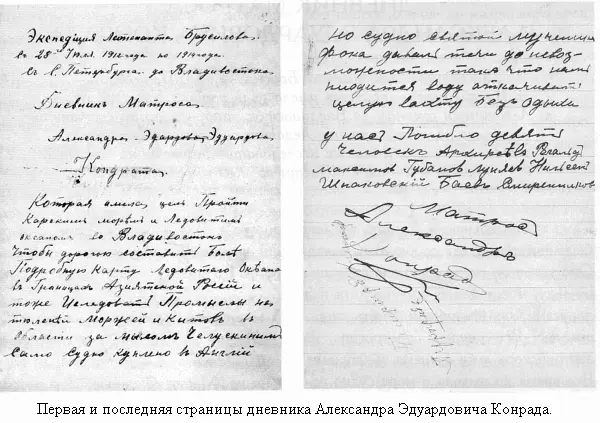 Экспедиція Лейтенанта Брусилова
съ 28 Июля 1912 года по 1914 года
съ С. Петербурга до Владивостока
Дневник Матроса
Александра Эдуардова
Кондрата
Которая имела цель Пройти
Карским морем и Ледовитим
океаном во Владивосток
Чтобы дорогою составить болѣ
Подробную Карту Ледовитого Океана
въ Границах Азиятской Росіи и
тоже Изследоват Промыслы на
тюленей Моржей и Китовъ в
области за мысом Челускиним
Само Судно куплено въ Англіи
но судно святой мученицы
фока давало течи до невоз-
можности така что нам
приходится воду откачивать
целую вахту безъ отдыха
у нас Погибло девять
человекъ Архиреѣв
максимов Губанов Луняев Нильсен
Шпаковскій Баев Смиренников
Матрос
Александръ
Конрадъ
Первая и последняя страницы дневника Александра Эдуардовича Конрада.